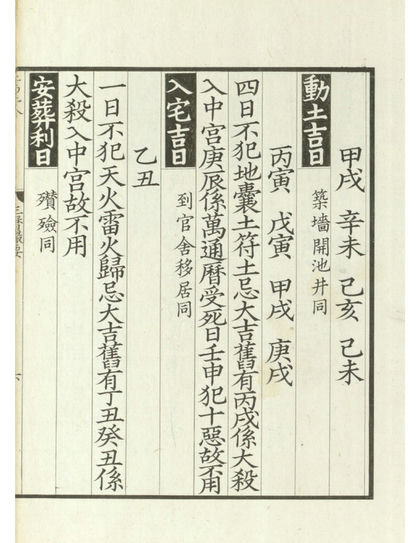 甲戌 辛未 己亥 己未
動土吉日 築墻開池井同
丙寅 戊寅 甲戌 庚戌
四日不犯地囊土符土忌大吉舊有丙戌係大殺
入中宮庚辰係萬通曆受死日壬申犯十惡故不用
入宅吉日 到官舍移居同
乙丑
一日不犯天火雷火歸忌大吉舊有丁丑癸丑係
大殺入中宮故不用
安葬利日 殯殮同
六